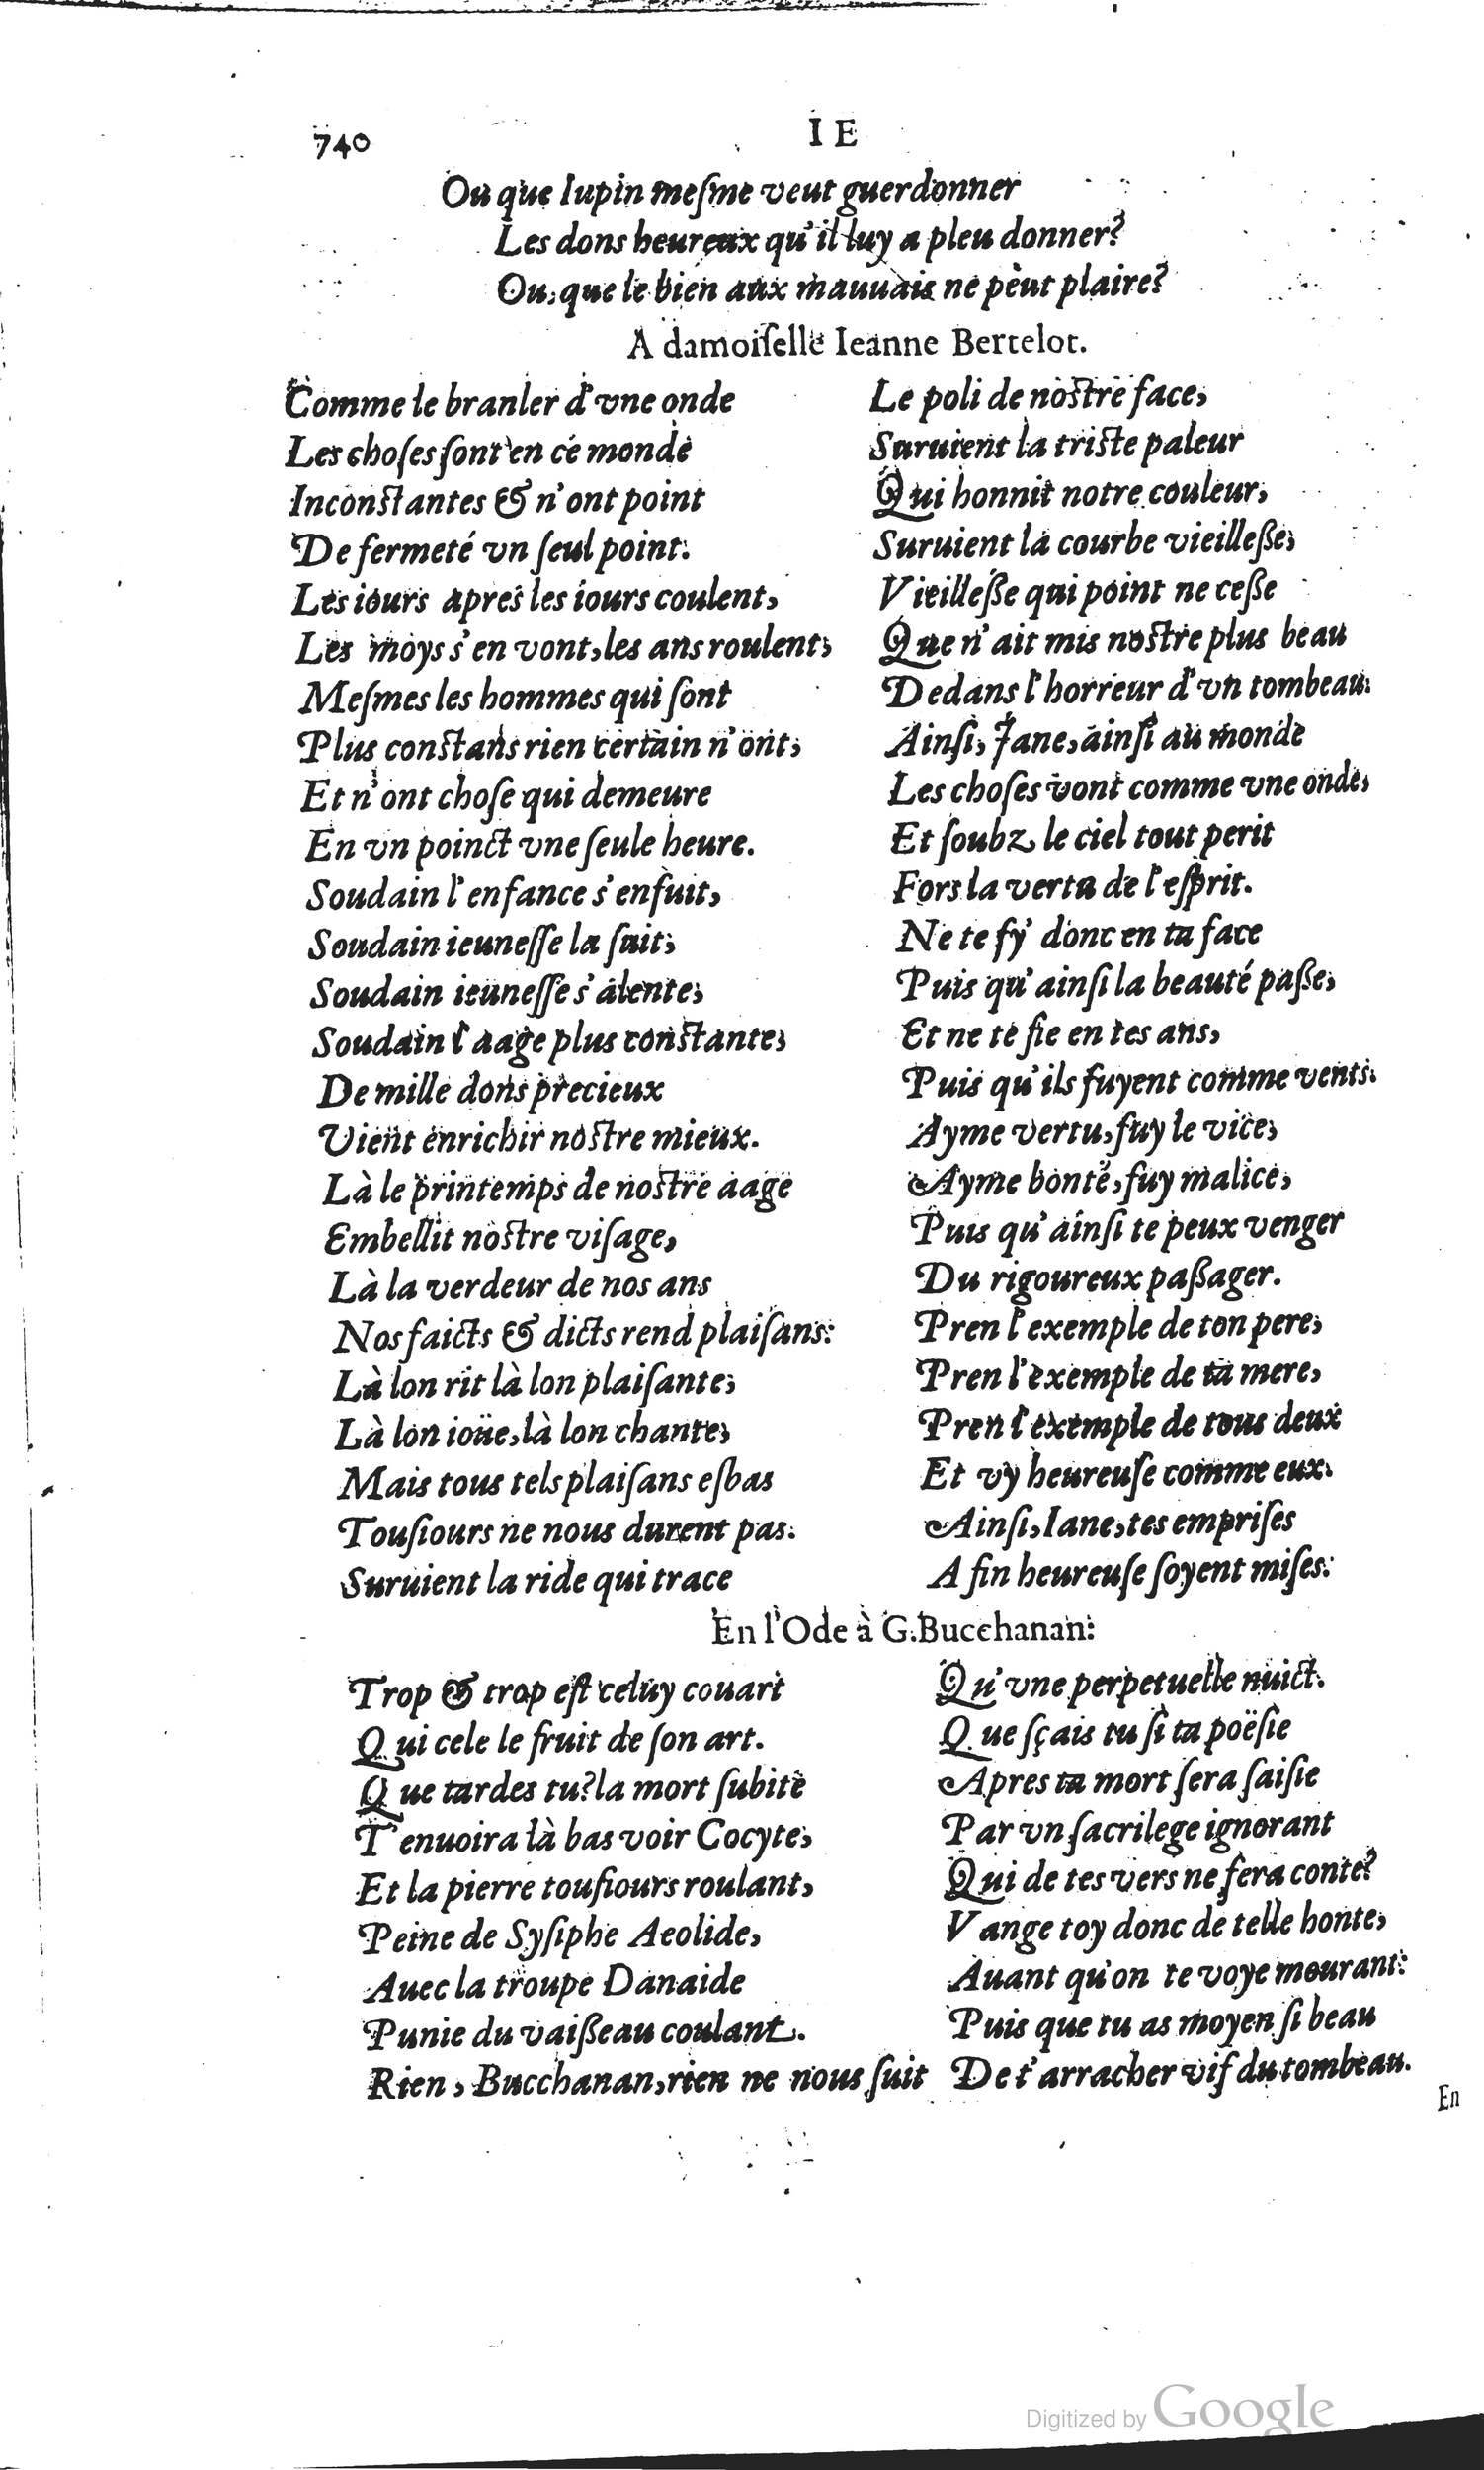 740
IE
Ou que Iupin meſme veut guerdonner
Les dons heureux qu'il luy a pleu donner?
Ou, que le bien aux mauuais ne pèut plaire?
A damoiſelle Ieanne Bertelot.
Comme le branler d'vne onde
Les choſes ſont en ce monde
Inconſtantes & n'ont point
De fermeté vn ſeul point.
Les iours apres les iours coulent,
Les moys s'en vont, les ans roulent,
Meſmes les hommes qui ſont
Plus conſtans rien certain n'ont,
Et n'ont choſe qui demeure
En vn poinct vne ſeule heure.
Soudain l'enfance s'enfuit,
Soudain ieuneſſe la ſuit,
Soudain ieuneſſe s'alente,
Soudain l'aage plus conſtante,
De mille dons precieux
Vient enrichir noſtre mieux.
Là le printemps de noſtre aage
Embellit noſtre viſage,
Là la verdeur de nos ans
Nos faicts & dicts rend plaiſans:
Là lon rit là lon plaiſante,
Là lon ioüe, là lon chante,
Mais tous tels plaiſans eſbas
Touſiours ne nous durent pas.
Suruient la ride qui trace
Le poli de noſtre face,
Suruient la triſte paleur
Qui honnit notre couleur,
Suruient la courbe vieilleſſe,
Vieilleſſe qui point ne ceſſe
Que n'ait mis noſtre plus beau
Dedans l'horreur d'vn tombeau.
Ainſi, Jane, ainſi au monde
Les choſes vont comme vne onde,
Et ſoubz le ciel tout perit
Fors la vertu de l'eſprit.
Ne te fy' donc en ta face
Puis qu'ainſi la beauté paſſe,
Et ne te fie en tes ans,
Puis qu'ils fuyent comme vents.
Ayme vertu, fuy le vice,
Ayme bonté, fuy malice,
Puis qu'ainſi te peux venger
Du rigoureux paſſager.
Pren l'exemple de ton pere,
Pren l'exemple de ta mere,
Pren l'exemple de tous deux
Et vy heureuſe comme eux.
Ainſi, Iane, tes empriſes
A fin heureuſe ſoyent miſes.
En l'Ode à G. Bucchanan:
Trop & trop eſt celuy couart
Qui cele le fruit de ſon art.
Que tardes tu? la mort ſubite
T'enuoira là bas voir Cocyte,
Et la pierre touſiours roulant,
Peine de Syſiphe Aeolide,
Auec la troupe Danaide
Punie du vaiſſeau coulant.
Rien, Bucchanan, rien ne nous ſuit
Qu'vne perpetuelle nuict.
Que ſçais tu ſi ta poëſie
Apres ta mort ſera ſaiſie
Par vn ſacrilege ignorant
Qui de tes vers ne fera conte?
Vange toy donc de telle honte,
Auant qu'on te voye mourant:
Puis que tu as moyen ſi beau
De t'arracher vif du tombeau.
En
Digitized by Google